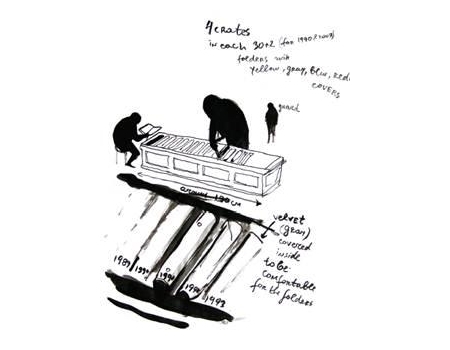 4 crates
in each 30+2 (for 1990 & 2009)
folders with
yellow, gray, blue, red
COVERS
guard
around 190 cm
velvet
(gray)
covered
inside
to be
comfortable
for the folders
1989 1990 1991 1992 1993